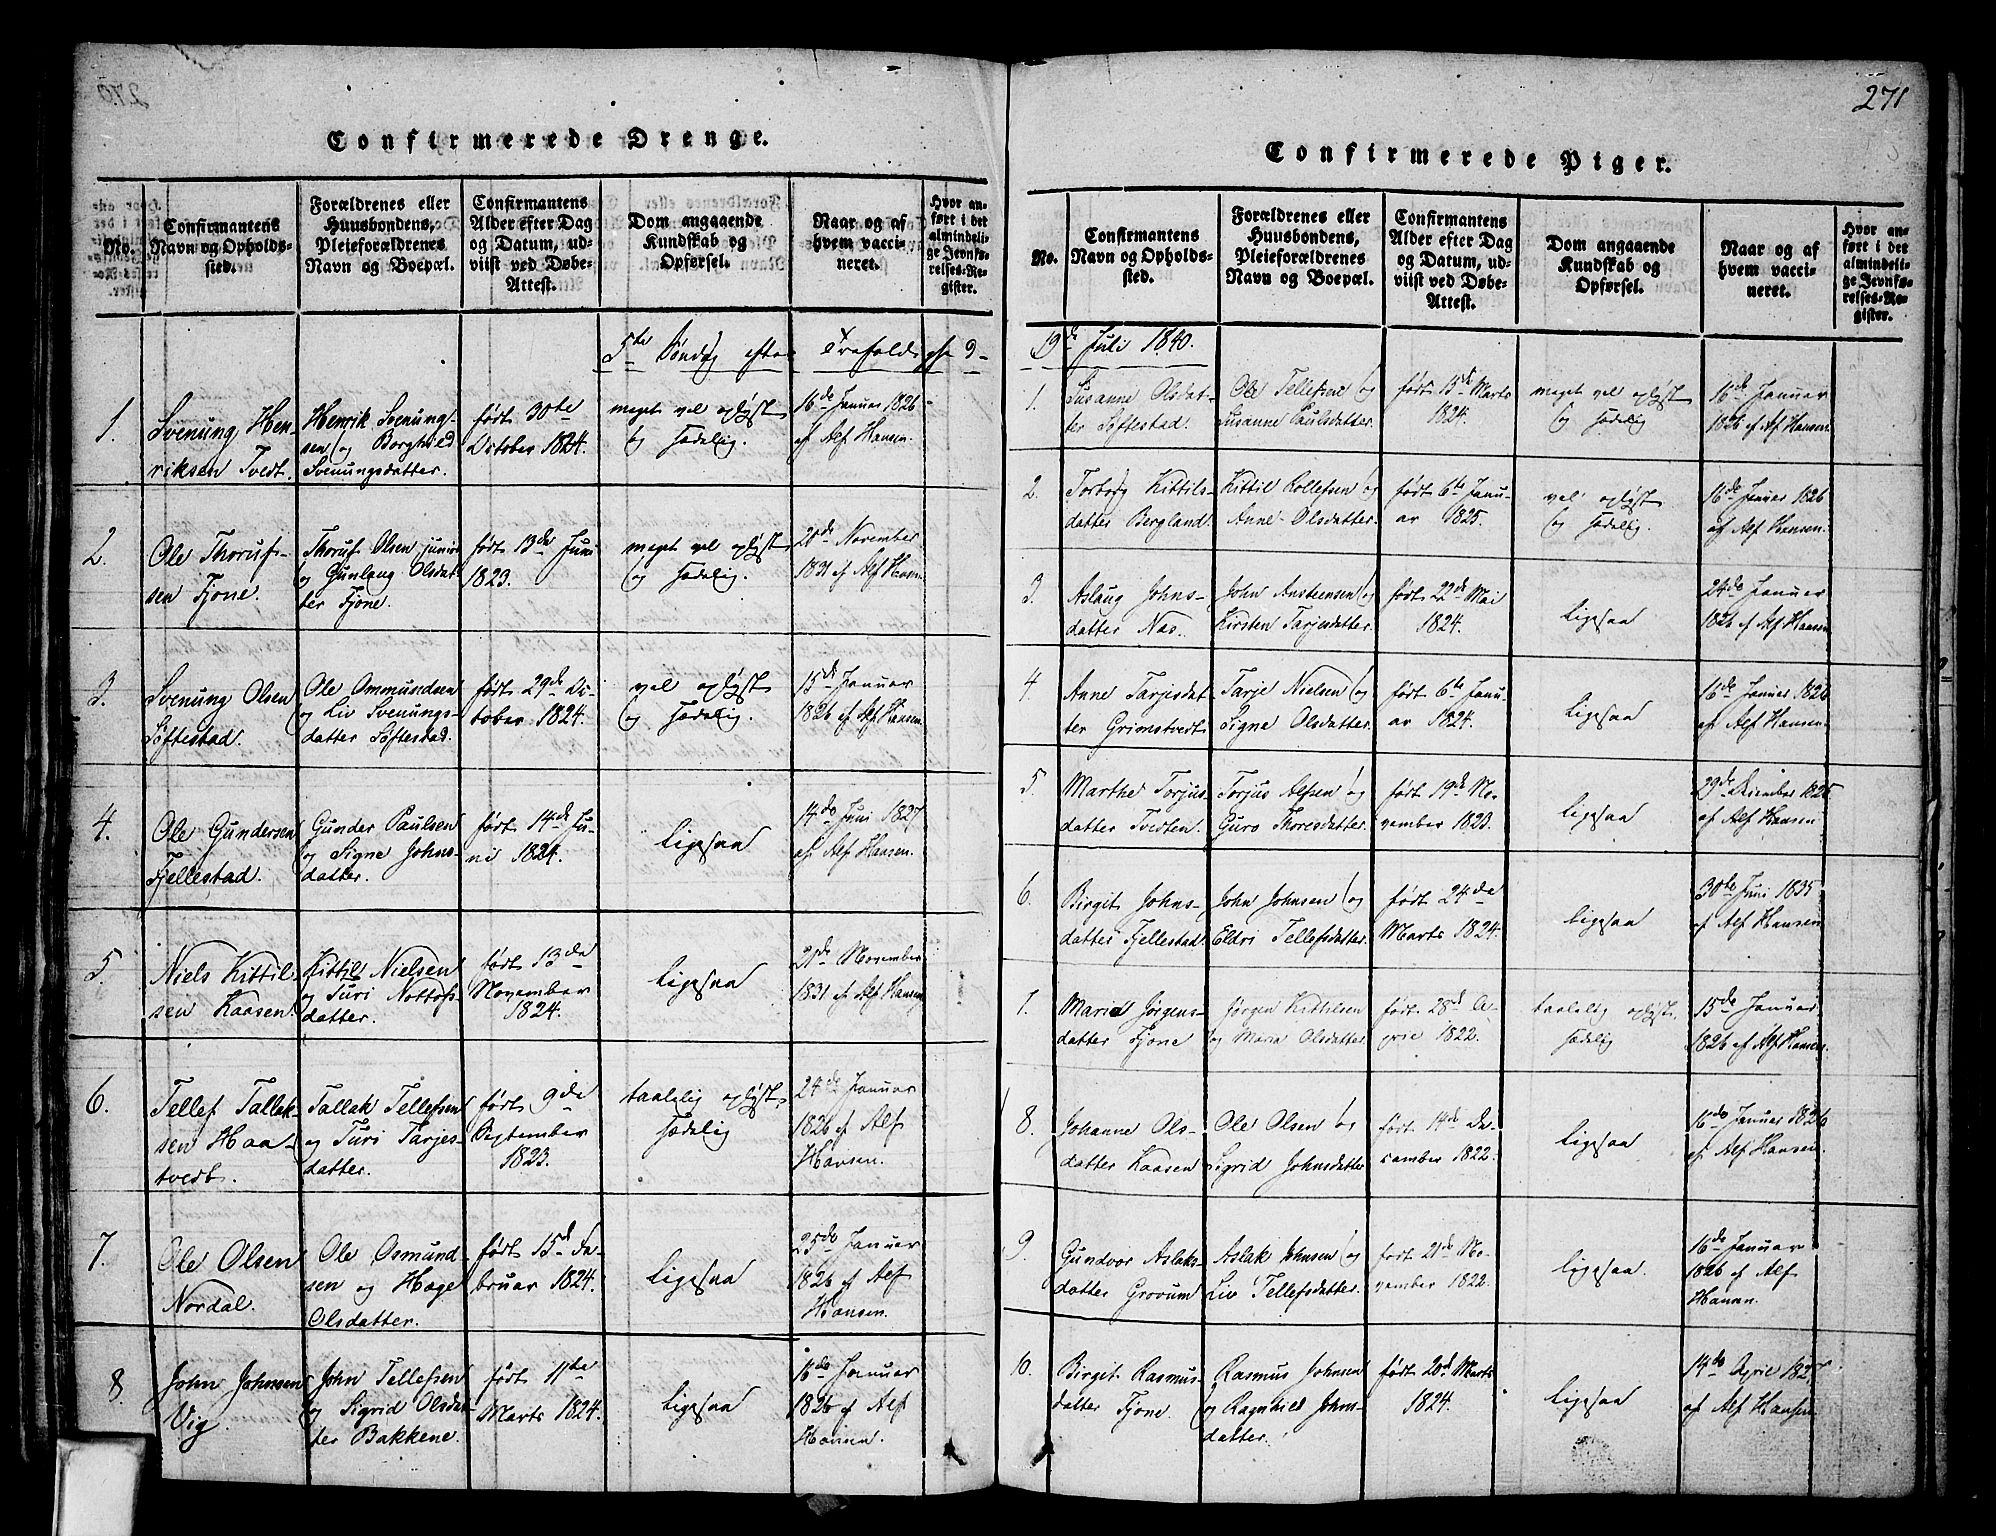 Confirmerede Drenge.
No.
Confirmantens
Navn og Opholds-
sted.
Forældrenes eller
Huusbondens,
Pleieforældrenes
Navn og Boepæl.
Confirmantens
Alder efter Dag
og Datum, ud-
viist ved Døbe-
Attest.
Dom angaaende
Kundskab og
Opførsel.
Naar og af
hvem vacci-
neret.
Hvor an-
ført i det
almindeli-
ge Jevnfø-
relses-Re-
gister.
5te Søndag efter Trefoldighed
1.
Svenung Hen-
riksen Tvedt.
Henrik Svenung-
sen og Borghild
Svenungsdatter.
født 30te
October 1824.
meget vel oplyst
og sædelig.
16de Januar 1826
af Alf Hansen.
2.
Ole Thoruf-
sen Fjone.
Thoruf Olsen junior
og Gunlaug Olsdat-
ter Fjone.
født 13de Juni
1823.
meget vel oplyst
og sædelig.
November
1831 af Alf Hansen
3.
Svenung Olsen
Søftestad.
Ole Ommundsen
og Liv Svenungs-
datter Søftestad.
født 29de Oc-
tober 1824.
vel oplyst
og sædelig.
15de Januar
1826 af Alf Hansen.
4.
Ole Gundersen
Fjellestad.
Gunder Paulsen
og Signe Johns-
datter.
født 14de Ju-
ni 1824.
ligesaa
14de Juni 1827
af Alf Hansen.
5.
Niels Kittil-
sen Kaasen.
Kittil Nielsen
og Turi Nottofs-
datter.
født 13de
November
1824.
ligesaa
21de November
1831 af Alf Hansen
6.
Tellef Tallak-
sen Haa-
tvedt.
Tallak Tellefsen
og Turi Tarjes-
datter.
født 9de
September
1823.
taalelig oplyst,
sædelig
24de Januar
1826 af Alf
Hansen.
7.
Ole Olsen
Nordal.
Ole Osmund-
sen og Hæge
Olsdatter.
født 15de Fe-
bruar 1824.
ligesaa
25de Januar
1826 af Alf
Hansen.
8.
John Johnsen
Vig.
John Tellefsen
og Sigrid Olsdat-
ter Bakkene.
født 11te
Marts 1824.
ligesaa
16de Januar
1826 af Alf
Hansen.
271
Confirmerede Piger.
No.
Confirmantens
Navn og Opholds-
sted.
Forældrenes eller
Huusbondens,
Pleieforældrenes
Navn og Boepæl.
Confirmantens
Alder efter Dag
og Datum, ud-
viist ved Døbe-
Attest.
Dom angaaende
Kundskab og
Opførsel.
Naar og af
hvem vacci-
neret.
Hvor an-
ført i det
almindeli-
ge Jevnfø-
relses-Re-
gister.
19de Juli 1840.
1.
Susanne Olsdat-
ter Søftestad.
Ole Tellefsen og
Susanne Paulsdatter.
født 15de Marts
1824.
meget vel oplyst
og sædelig
16de Januar
1826 af Alf Hansen.
2.
Torborg Kittils-
datter Bergland.
Kittil Rollefsen og
Anne Olsdatter.
født 6te Janu-
ar 1825.
vel oplyst
og sædelig.
16de Januar 1826
af Alf Hansen.
3.
Aslaug Johns-
datter Næs.
John Anstensen og
Kirsten Tarjesdatter.
født 22de Mai
1824.
ligesaa
24de Januar
1826 af Alf Hansen
4.
Anne Tarjesdat-
ter Grimstvedt
Tarje Nielsen og
Signe Olsdatter.
født 6te Janu-
ar 1824.
ligesaa
16de Januar 1826
af Alf Hansen.
5.
Marthe Torjus-
datter Tvedten.
Torjus Alfsen og
Guro Thoresdatter.
født 19de No-
vember 1823.
ligesaa
29de December 1825
af Alf Hansen.
6.
Birgit Johns-
datter Fjellestad.
John Johnsen og
Eldri Tellefsdatter.
født 24de
Marts 1824.
ligesaa
30te Juni 1835
af Alf Hansen.
7.
Maria Jørgens-
datter Fjone
Jørgen Kittilsen
og Maria Olsdatter.
født 28de A-
pril 1822.
taalelig oplyst.
sædelig
15de Januar
1826 af Alf Hansen.
8.
Johanne Ols-
datter Kaasen
Ole Olsen og
Sigrid Johnsdatter
født 14de De-
cember 1822.
ligesaa
16de Januar 1826
af Alf Hansen.
9.
Gundvor Aslaks-
datter Grovum
Aslak Johnsen og
Liv Tellefsdatter.
født 21de No-
vember 1822.
ligesaa.
16de Januar
1826 af Alf
Hansen.
10.
Birgit Rasmus-
datter Fjone.
Rasmus Johnsen
og Ragnhild Johns-
datter.
født 20de Marts
1824.
ligesaa
14de April 1827
af Alf Hansen.